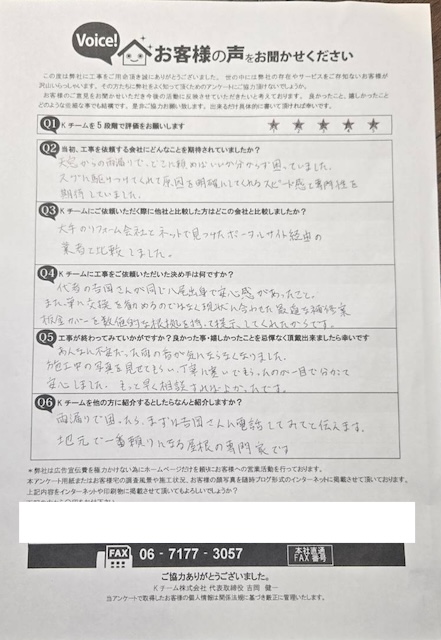 Voice!
お客様の声をお聞かせください
この度は弊社に工事をご用命頂き誠にありがとうございました。世の中には弊社の存在やサービスをご存知ないお客様が
沢山いらっしゃいます。その方たちに弊社をよく知って頂くためのアンケートにご協力頂けないでしょうか。
お客様のご意見をお聞かせいただき今後の活動に反映させていただきたいと考えております。良かったこと、嬉しかったこと
どのような些細な事でも結構です。是非ご協力お願い致します。出来るだけ具体的に書いて頂ければ幸いです。
Q1 Kチームを5段階で評価をお願いします ★ ★ ★ ★ ★
Q2 当初、工事を依頼する会社にどんなことを期待されていましたか?
天窓からの雨漏りで、どこに頼めばいいか分からず困っていました。
スグに駆けつけてくれて原因を明確にしてくれるスピード感と専門性を
期待していました。
Q3 Kチームにご依頼いただく際に他社と比較した方はどこの会社と比較しましたか?
大手のリフォーム会社とネットで見つけたポータルサイト経由の
業者と比較しました。
Q4 Kチームに工事をご依頼いただいた決め手は何ですか?
代表の吉岡さんが同じ八尾出身で安心感があったこと。
また単に交換を勧めるのではなく現状に合わせた最適な補修案
板金カバーを数値的な根拠を持って提示してくれたからです。
Q5 工事が終わってみていかがですか?良かった事・嬉しかったことを忌憚なく頂戴出来ましたら幸いです
あんなに不安だった雨の音が気にならなくなりました。
施工中の写真を見せてもらい、丁寧に塞いでもらったのが一目で分かって
安心しました。もっと早く相談すればよかったです。
Q6 Kチームを他の方に紹介するとしたらなんと紹介しますか?
雨漏りで困ったら、まずは吉岡さんに電話してみてと伝えます。
地元で一番頼りになる屋根の専門家です
*弊社は広告宣伝費を極力かけない為にホームページだけを頼りにお客様への営業活動を行っております。
本アンケート用紙またはお客様宅の調査風景や施工状況、お客様の顔写真を随時ブログ形式のインターネットに掲載させて頂いております。
上記内容をインターネットや印刷物に掲載させて頂いてもよろしいでしょうか?
FAX 06-7177-3057 本社直通 FAX番号
ご協力ありがとうございました。
Kチーム株式会社 代表取締役 吉岡 健一
当アンケートで取得したお客様の個人情報は関係法規に基づき厳正に管理いたします。